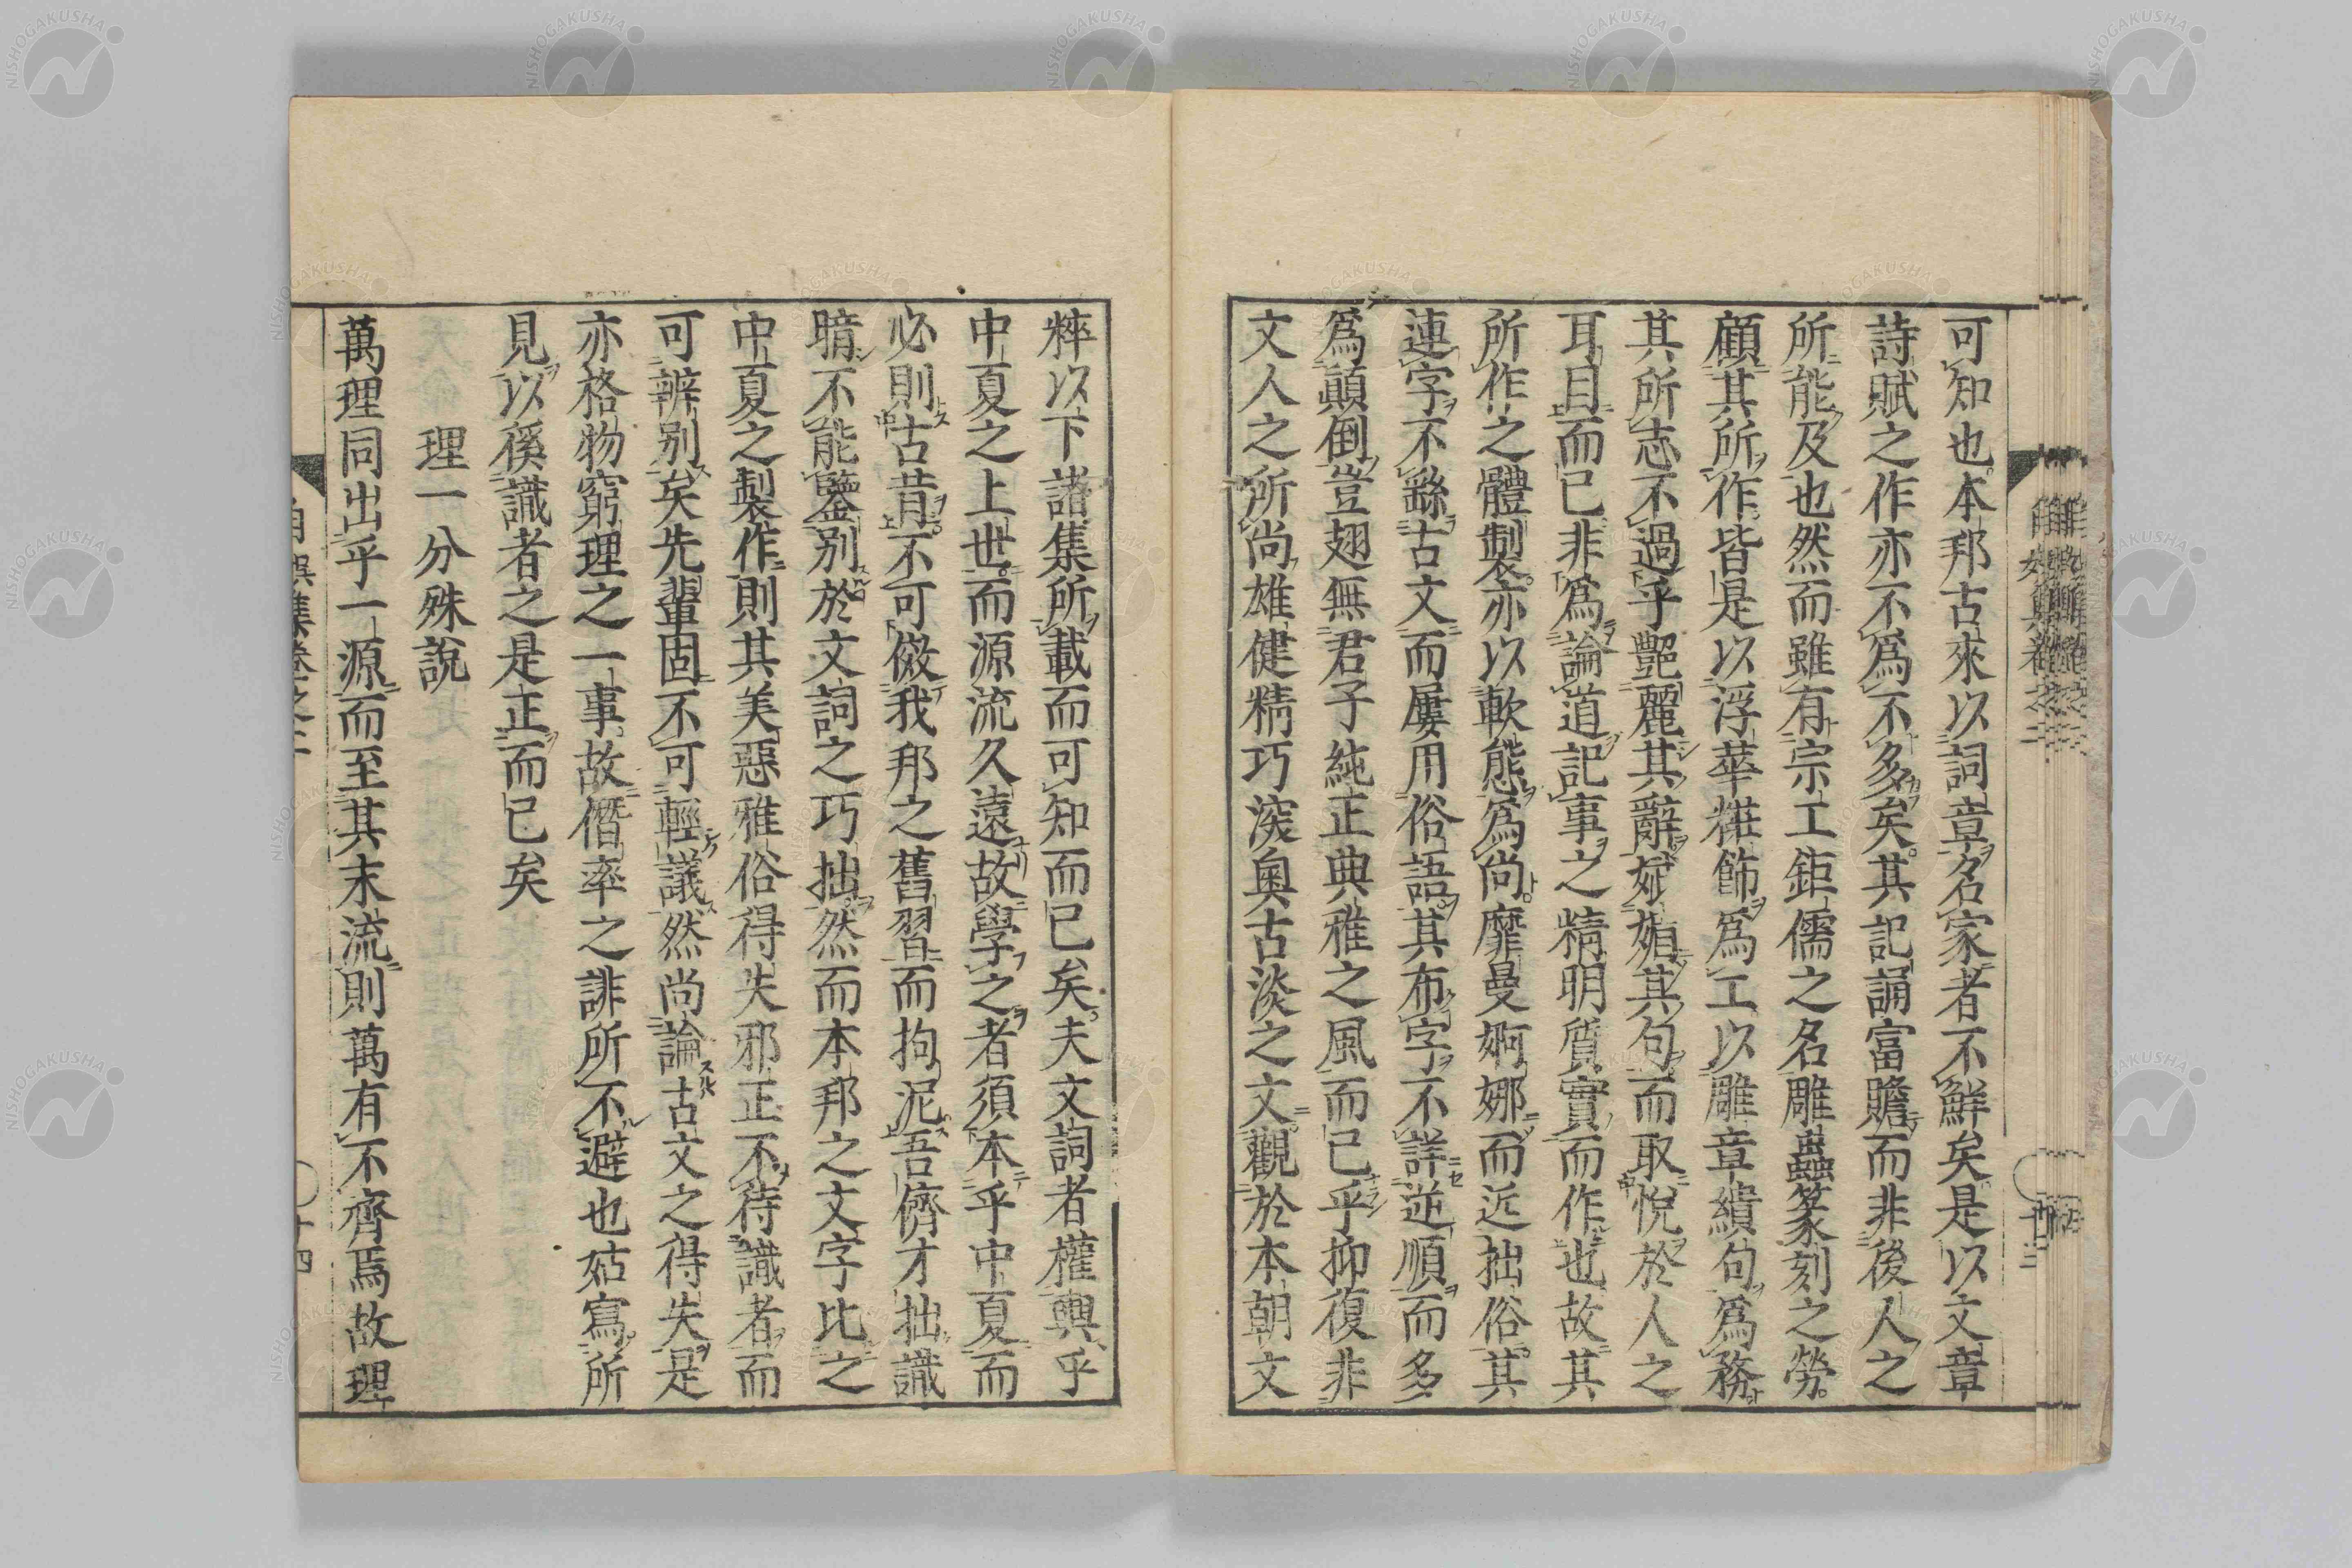 可知也本邦古來以詞章名家者不鮮矣是以文章
詩賦之作亦不爲不多矣其記誦富贍而非後人之
所能及也然而雖有宗工鉅儒之名雕蟲篆刻之勞
顧其所作皆是以浮華粧飾爲工以雕章繢句爲務
其所志不過乎艷麗其辭娬媚其句而取悅於人之
耳目而已非爲論道記事之精明質實而作也故其
所作之體製亦以軟態爲尚靡曼婀娜而近拙俗其
連字不繇古文而屢用俗語其布字不詳逆順而多
爲顚倒豈翅無君子純正典雅之風而已乎抑復非
文人之所尚雄健精巧深奧古淡之文觀於本朝文
粹以下諸集所載而可知而已矣夫文詞者權輿乎
中夏之上世而源流久遠故學之者須本乎中夏而
必則古昔不可傚我邦之舊習而拘泥吾儕才拙識
暗不能鑒別於文詞之巧拙然而本邦之文字比之
中夏之製作則其美惡雅俗得失邪正不待識者而
可辨别矣先輩固不可輕議然尚論古文之得失是
亦格物窮理之一事故僭率之誹所不避也姑寫所
見以徯識者之是正而已矣
理一分殊說
萬理同出乎一源而至其末流則萬有不齊焉故理
自娛集卷之二
十四
NISHOGAKUSHA